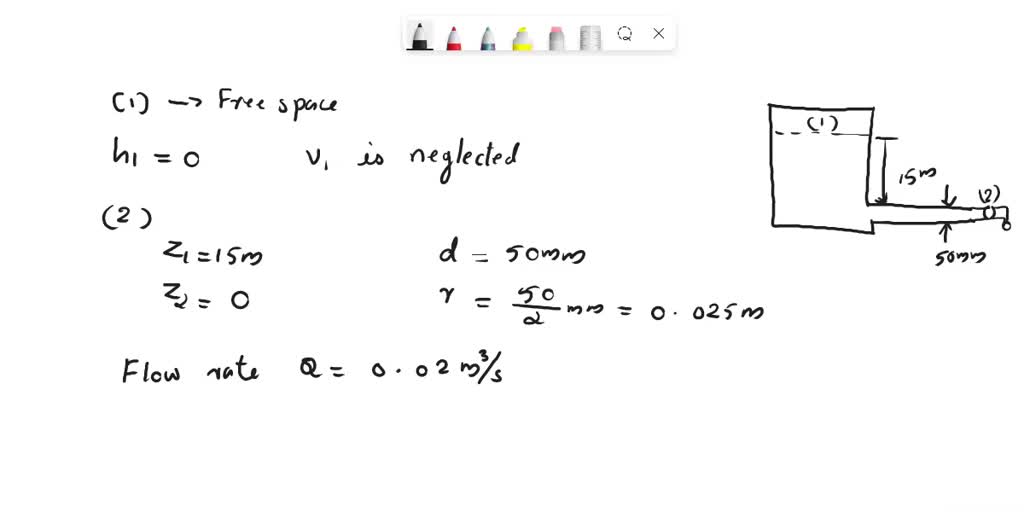 (1) → Free space
h₁ = 0 v₁ is neglected
(2)
Z₁ = 15m d = 50mm
Z₂ = 0 r = 50/2 mm = 0.025m
Flow rate Q = 0.02 m³/s
(1)
15m
(2)
50mm